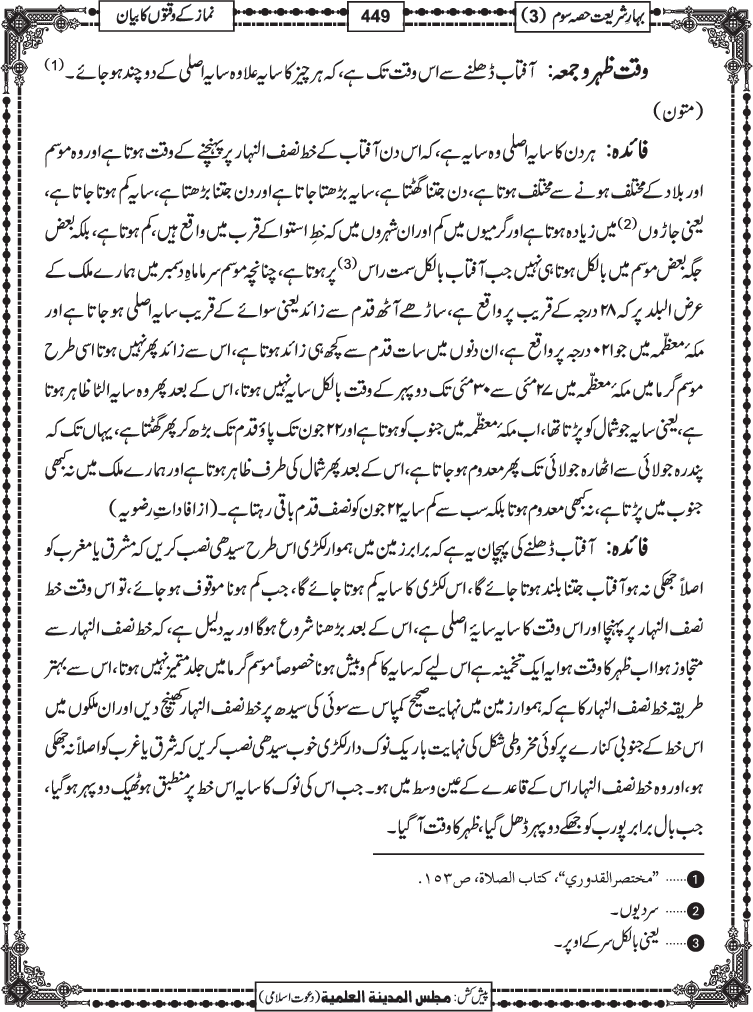 بہارِ شریعت حصہ سوم (3)
449
نماز کے وقتوں کا بیان
وقت ظہر و جمعہ: آفتاب ڈھلنے سے اس وقت تک ہے، کہ ہر چیز کا سایہ علاوہ سایہ اصلی کے دو چند ہو جائے۔ (1)
(متون)
فائدہ: ہر دن کا سایہ اصلی وہ سایہ ہے، کہ اس دن آفتاب کے خط نصف النہار پر پہنچنے کے وقت ہوتا ہے اور وہ موسم
اور بلاد کے مختلف ہونے سے مختلف ہوتا ہے، دن جتنا گھٹتا ہے، سایہ بڑھتا جاتا ہے اور دن جتنا بڑھتا ہے، سایہ کم ہوتا جاتا ہے،
یعنی جاڑوں (2) میں زیادہ ہوتا ہے اور گرمیوں میں کم اور ان شہروں میں کہ خطِ استوا کے قرب میں واقع ہیں، کم ہوتا ہے، بلکہ بعض
جگہ بعض موسم میں بالکل ہوتا ہی نہیں جب آفتاب بالکل سمت راس (3) پر ہوتا ہے، چنانچہ موسم سرما ماہِ دسمبر میں ہمارے ملک کے
عرض البلد پر کہ ۲۸ درجہ کے قریب پر واقع ہے، ساڑھے آٹھ قدم سے زائد یعنی سوائے کے قریب سایہ اصلی ہو جاتا ہے اور
مکۂ معظّمہ میں جو ۲۱ درجہ پر واقع ہے، ان دنوں میں سات قدم سے کچھ ہی زائد ہوتا ہے، اس سے زائد پھر نہیں ہوتا اسی طرح
موسم گرما میں مکۂ معظّمہ میں ۲۷ مئی سے ۳۰ مئی تک دوپہر کے وقت بالکل سایہ نہیں ہوتا، اس کے بعد پھر وہ سایہ الٹا ظاہر ہوتا
ہے، یعنی سایہ جو شمال کو پڑتا تھا، اب مکۂ معظّمہ میں جنوب کو ہوتا ہے اور ۲۲ جون تک پاؤ قدم تک بڑھ کر پھر گھٹتا ہے، یہاں تک کہ
پندرہ جولائی سے اٹھارہ جولائی تک پھر معدوم ہو جاتا ہے، اس کے بعد پھر شمال کی طرف ظاہر ہوتا ہے اور ہمارے ملک میں نہ کبھی
جنوب میں پڑتا ہے، نہ کبھی معدوم ہوتا بلکہ سب سے کم سایہ ۲۲ جون کو نصف قدم باقی رہتا ہے۔ (از افاداتِ رضویہ)
فائدہ: آفتاب ڈھلنے کی پہچان یہ ہے کہ برابر زمین میں ہموار لکڑی اس طرح سیدھی نصب کریں کہ مشرق یا مغرب کو
اصلاً جھکی نہ ہو آفتاب جتنا بلند ہوتا جائے گا، اس لکڑی کا سایہ کم ہوتا جائے گا، جب کم ہونا موقوف ہو جائے، تو اس وقت خط
نصف النہار پر پہنچا اور اس وقت کا سایہ سایۂ اصلی ہے، اس کے بعد بڑھنا شروع ہوگا اور یہ دلیل ہے، کہ خط نصف النہار سے
متجاوز ہوا اب ظہر کا وقت ہوا یہ ایک تخمینہ ہے اس لیے کہ سایہ کا کم و بیش ہونا خصوصاً موسم گرما میں جلد متمیز نہیں ہوتا، اس سے بہتر
طریقہ خط نصف النہار کا ہے کہ ہموار زمین میں نہایت صحیح کمپاس سے سوئی کی سیدھ پر خط نصف النہار کھینچ دیں اور ان ملکوں میں
اس خط کے جنوبی کنارے پر کوئی مخروطی شکل کی نہایت باریک نوک دار لکڑی خوب سیدھی نصب کریں کہ شرق یا غرب کو اصلاً نہ جھکی
ہو، اور وہ خط نصف النہار اس کے قاعدے کے عین وسط میں ہو۔ جب اس کی نوک کا سایہ اس خط پر منطبق ہو ٹھیک دوپہر ہو گیا،
جب بال برابر پورب کو جھکے دوپہر ڈھل گیا، ظہر کا وقت آ گیا۔
1 ...... "مختصر القدوري"، کتاب الصلاة، ص ۱۵۳.
2 ...... سردیوں۔
3 ...... یعنی بالکل سر کے اوپر۔
پیش کش: مجلس المدینة العلمیة (دعوت اسلامی)